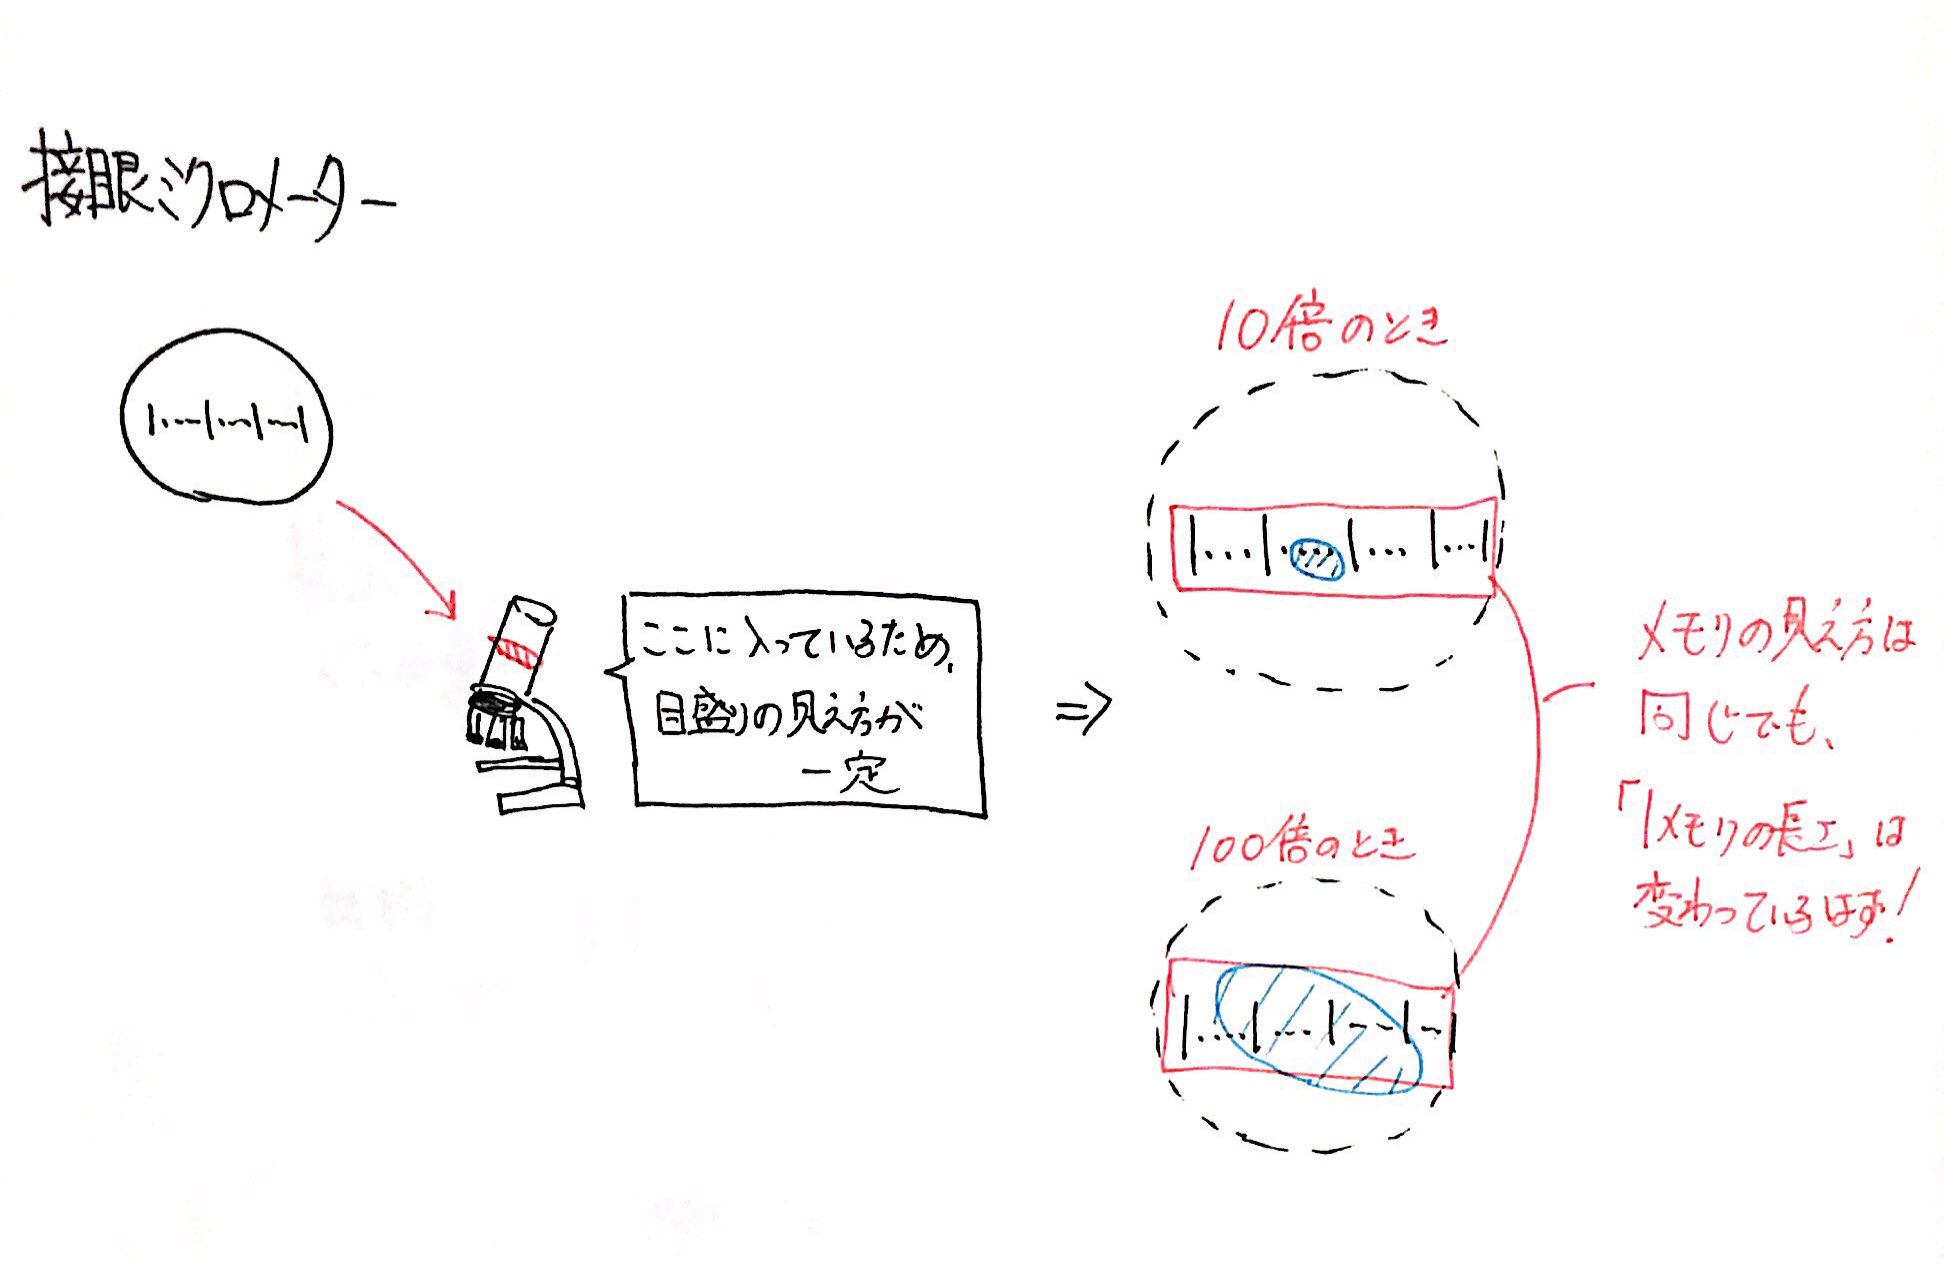 接眼ミクロメーター
ここに入っているため、
目盛りの見え方が
一定
⇒
10倍のとき
100倍のとき
メモリの見え方は
同じでも、
「1メモリの長さ」は
変わっているはず!